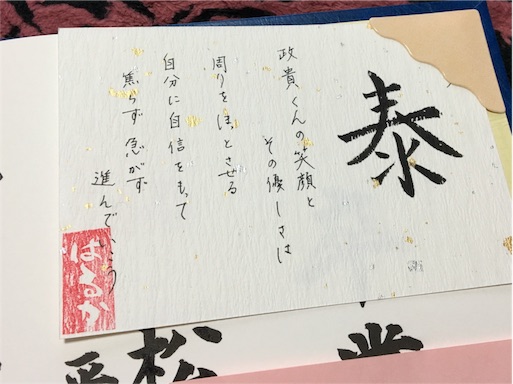 泰
政貴くんの笑顔と
その優しさは
周りをほっとさせる
自分に自信をもって
焦らず急がず
進んでいこう
はるか
松